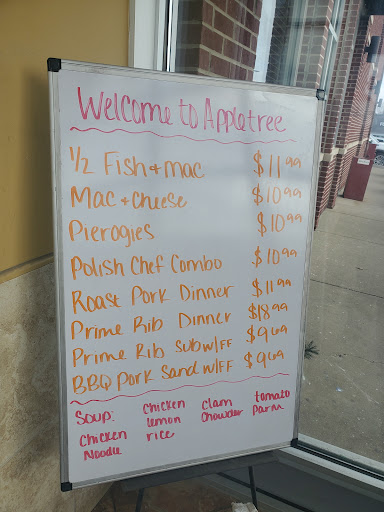 Welcome to Appletree
1/2 Fish + mac $11.99
Mac + cheese $10.99
Pierogies $10.99
Polish Chef Combo $10.99
Roast Pork Dinner $11.99
Prime Rib Dinner $18.99
Prime Rib Sub w/FF $9.69
BBQ Pork Sand w/FF $9.69
Soup: chicken lemon rice clam chowder tomato parm
chicken noodle